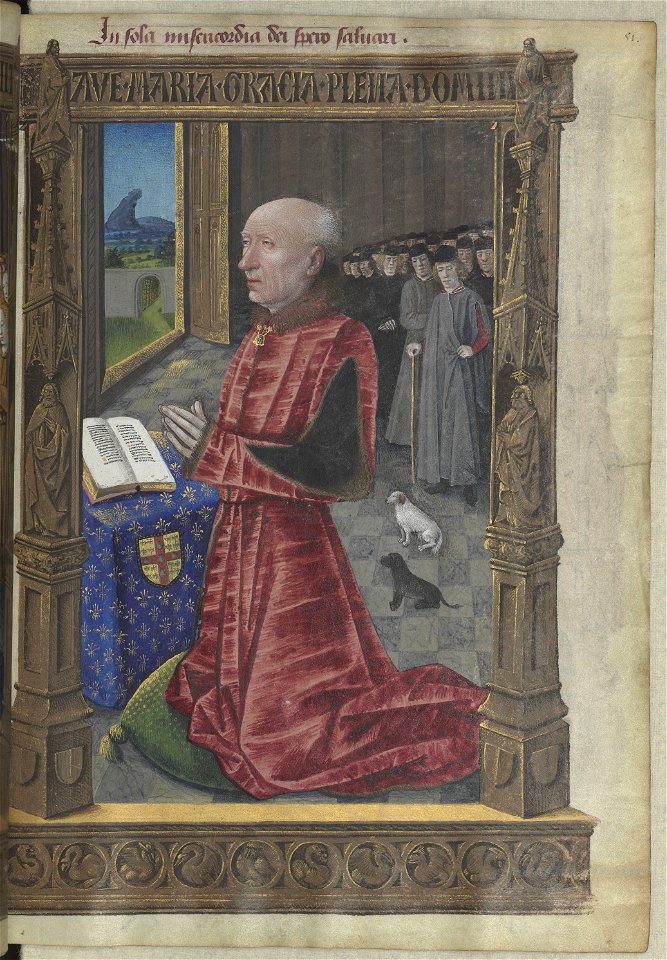 In sola misericordia dei spero saluari .
51.
AVE·MARIA·GRACIA·PLENA·DOMIN